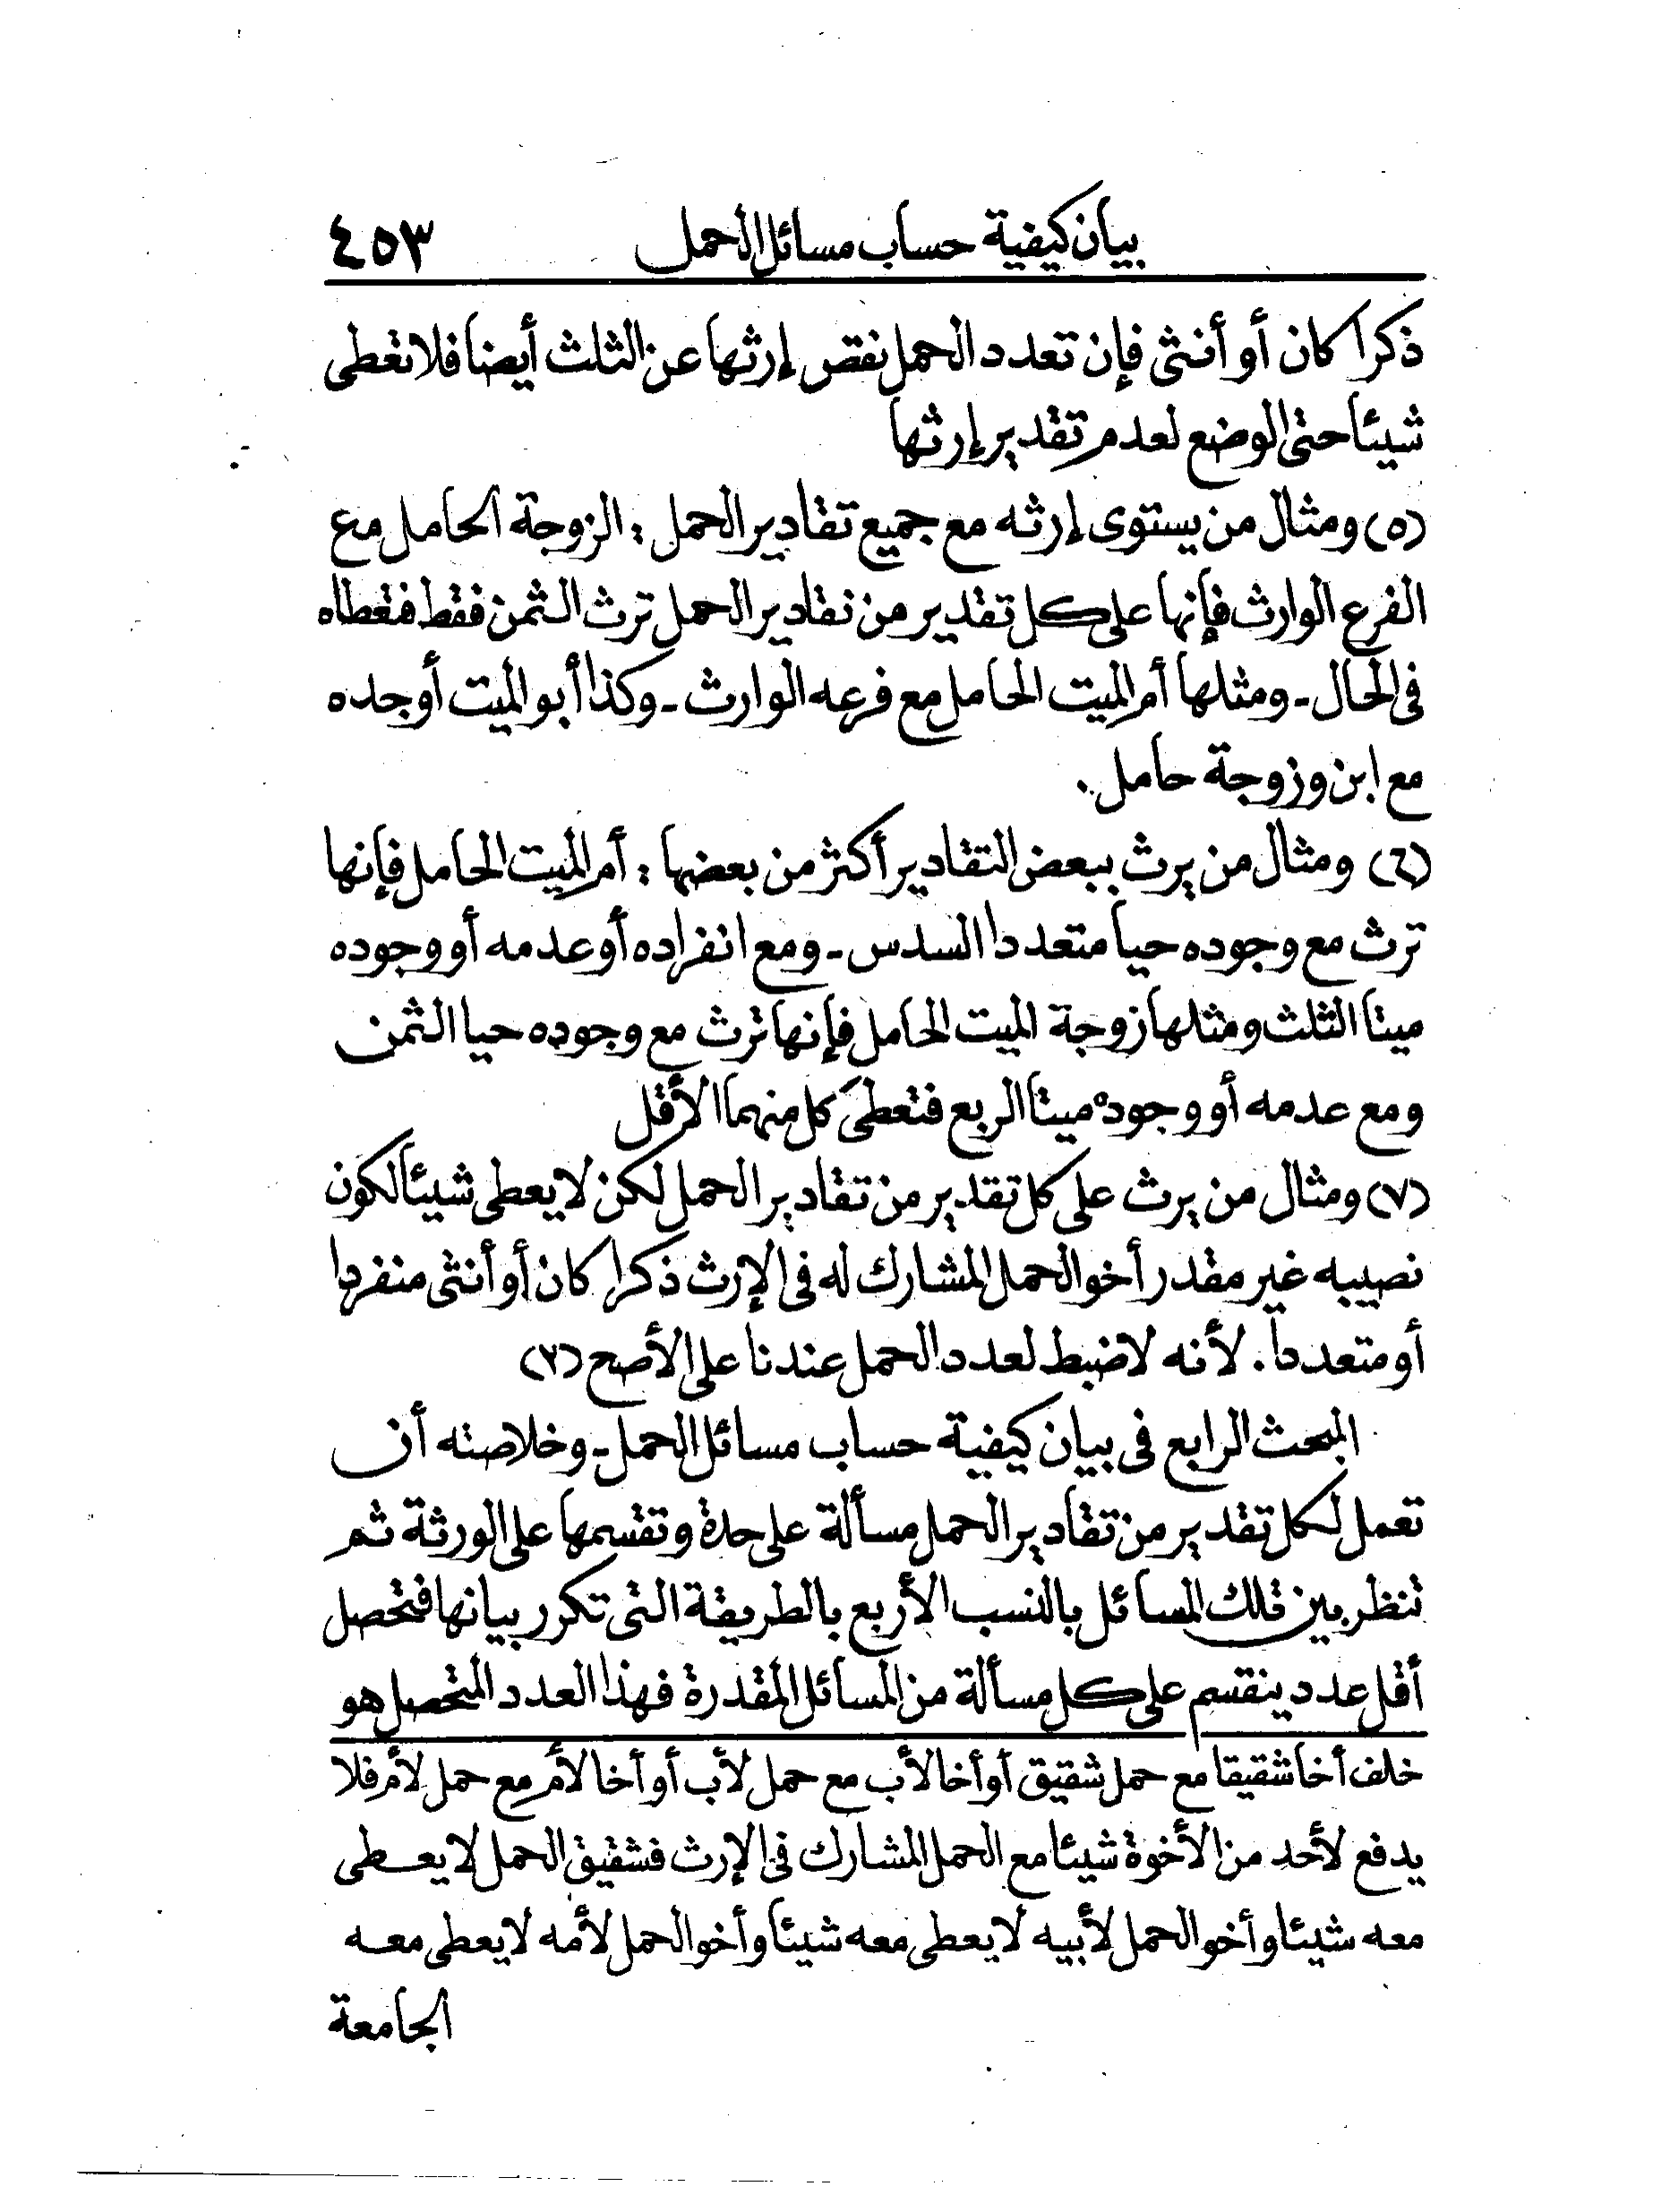 بيان كيفية حساب مسائل الحمل ٤٥٣
ذكرا كان أو أنثى فإن تعدد الحمل نقص إرثها عن الثلث أيضا فلا تعطى
شيئا حتى الوضع لعدم تقدير إرثها
(٥) ومثال من يستوى إرثه مع جميع تقادير الحمل : الزوجة الحامل مع
الفرع الوارث فإنها على كل تقدير من تقادير الحمل ترث الثمن فقط فتعطاه
فى الحال - ومثلها أم الميت الحامل مع فرعه الوارث - وكذا أبو الميت أو جده
مع ابن وزوجة حامل.
(٦) ومثال من يرث ببعض التقادير أكثر من بعضها : أم الميت الحامل فإنها
ترث مع وجوده حيا متعددا السدس - ومع انفراده أو عدمه أو وجوده
ميتا الثلث ومثلها زوجة الميت الحامل فإنها ترث مع وجوده حيا الثمن
ومع عدمه أو وجوده ميتا الربع فتعطى كل منهما الأقل
(٧) ومثال من يرث على كل تقدير من تقادير الحمل لكن لا يعطى شيئا لكون
نصيبه غير مقدر أخو الحمل المشارك له فى الإرث ذكرا كان أو أنثى منفردا
أو متعددا. لأنه لا ضبط لعدد الحمل عندنا على الأصح (٢)
المبحث الرابع فى بيان كيفية حساب مسائل الحمل - وخلاصته أن
تعمل لكل تقدير من تقادير الحمل مسألة على حدة وتقسمها على الورثة ثم
تنظر بين تلك المسائل بالنسب الأربع بالطريقة التى تكرر بيانها فتحصل
أقل عدد ينقسم على كل مسألة من المسائل المقدرة فهذا العدد المتحصل هو
خلف أخا شقيقا مع حمل شقيق أو أخا لأب مع حمل لأب أو أخا لأم مع حمل لأم فلا
يدفع لأحد من الأخوة شيئا مع الحمل المشارك فى الإرث فشقيق الحمل لا يعطى
معه شيئا وأخو الحمل لأبيه لا يعطى معه شيئا وأخو الحمل لأمه لا يعطى معه
الجامعة